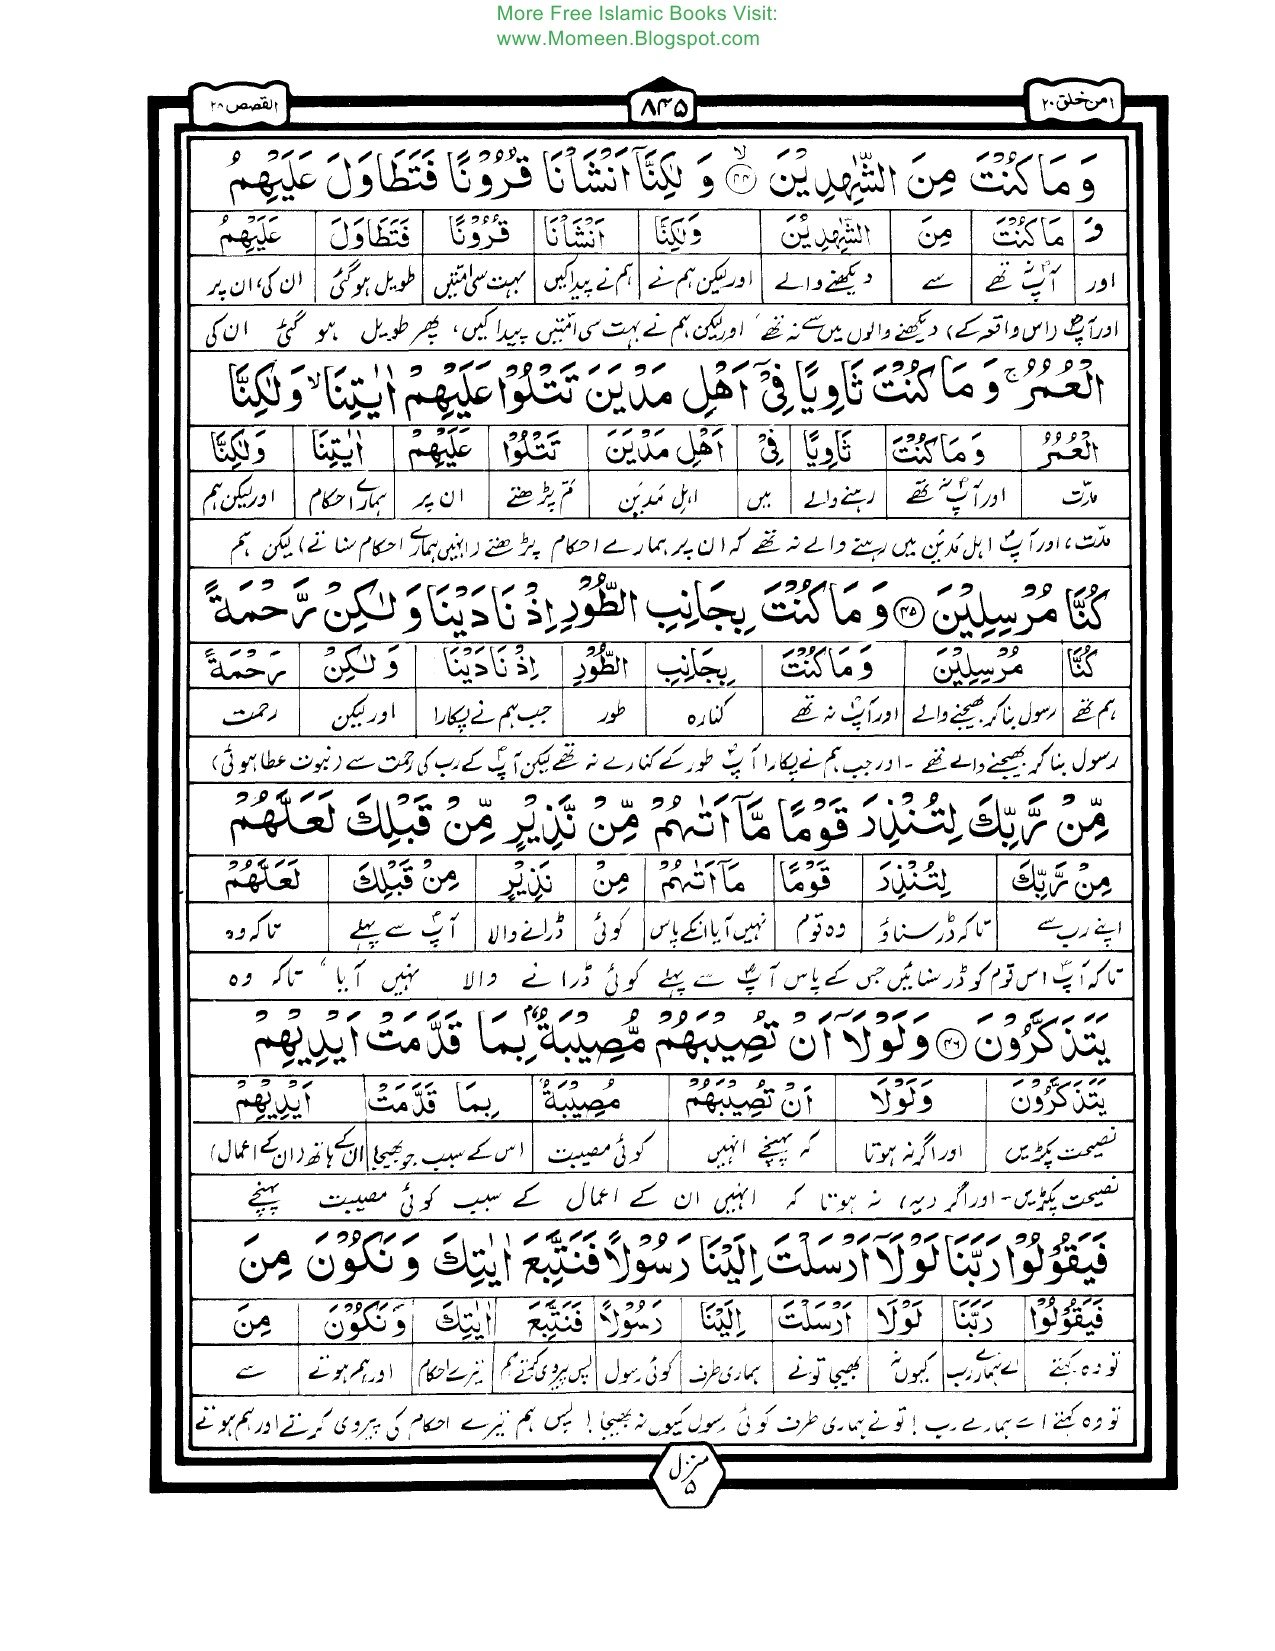 More Free Islamic Books Visit:
www.Momeen.Blogspot.com
امن خلق ۲۰
۸۴۵
القصص ۲۸
وَ مَا كُنْتَ مِنَ الشّٰهِدِيْنَ ۙ۴۴ وَ لٰكِنَّاۤ اَنْشَاْنَا قُرُوْنًا فَتَطَاوَلَ عَلَيْهِمُ
وَ مَا كُنْتَ مِنَ الشّٰهِدِيْنَ وَلٰكِنَّا اَنْشَاْنَا قُرُوْنًا فَتَطَاوَلَ عَلَيْهِمُ
اور آپؐ نہ تھے سے دیکھنے والے اور لیکن ہم نے ہم نے پیدا کیں بہت سی امتیں طویل ہوگئی ان کی، ان پر
اور آپؐ (اس واقعہ کے) دیکھنے والوں میں سے نہ تھے، اور لیکن ہم نے بہت سی امتیں پیدا کیں، پھر طویل ہو گئی ان کی
الْعُمُرُ ۚ وَ مَا كُنْتَ ثَاوِيًا فِيْۤ اَهْلِ مَدْيَنَ تَتْلُوْا عَلَيْهِمْ اٰيٰتِنَا ۙ وَلٰكِنَّا
الْعُمُرُ وَ مَا كُنْتَ ثَاوِيًا فِيْ اَهْلِ مَدْيَنَ تَتْلُوْا عَلَيْهِمْ اٰيٰتِنَا وَلٰكِنَّا
مدّت اور آپؐ نہ تھے رہنے والے میں اہل مَدیَن تم پڑھتے ان پر ہمارے احکام اور لیکن ہم
مدّت، اور آپؐ اہل مَدیَن میں رہنے والے نہ تھے کہ ان پر ہمارے احکام پڑھتے (انہیں ہمارے احکام سناتے) لیکن ہم
كُنَّا مُرْسِلِيْنَ ۴۵ وَ مَا كُنْتَ بِجَانِبِ الطُّوْرِ اِذْ نَادَيْنَا وَ لٰكِنْ رَّحْمَةً
كُنَّا مُرْسِلِيْنَ وَ مَا كُنْتَ بِجَانِبِ الطُّوْرِ اِذْ نَادَيْنَا وَ لٰكِنْ رَحْمَةً
ہم تھے رسول بنا کر بھیجنے والے اور آپؐ نہ تھے کنارہ طور جب ہم نے پکارا اور لیکن رحمت
رسول بنا کر بھیجنے والے تھے۔ اور جب ہم نے پکارا آپؐ طور کے کنارے نہ تھے لیکن آپؐ کے رب کی رحمت سے (نبوت عطا ہوئی)
مِّنْ رَّبِّكَ لِتُنْذِرَ قَوْمًا مَّاۤ اَتٰىهُمْ مِّنْ نَّذِيْرٍ مِّنْ قَبْلِكَ لَعَلَّهُمْ
مِنْ رَّبِّكَ لِتُنْذِرَ قَوْمًا مَّاۤ اَتٰىهُمْ مِنْ نَذِيْرٍ مِنْ قَبْلِكَ لَعَلَّهُمْ
اپنے رب سے تاکہ ڈر سناؤ وہ قوم نہیں آیا انکے پاس کوئی ڈرانے والا آپؐ سے پہلے تاکہ وہ
تاکہ آپؐ اس قوم کو ڈر سنائیں جس کے پاس آپؐ سے پہلے کوئی ڈرانے والا نہیں آیا، تاکہ وہ
يَتَذَكَّرُوْنَ ۴۶ وَلَوْلَاۤ اَنْ تُصِيْبَهُمْ مُّصِيْبَةٌۢ بِمَا قَدَّمَتْ اَيْدِيْهِمْ
يَتَذَكَّرُوْنَ وَلَوْلَا اَنْ تُصِيْبَهُمْ مُصِيْبَةٌ بِمَا قَدَّمَتْ اَيْدِيْهِمْ
نصیحت پکڑیں اور اگر نہ ہوتا کہ پہنچے انہیں کوئی مصیبت اس کے سبب جو بھیجا ان کے ہاتھ (ان کے اعمال)
نصیحت پکڑیں۔ اور اگر (یہ) نہ ہوتا کہ انہیں ان کے اعمال کے سبب کوئی مصیبت پہنچے
فَيَقُوْلُوْا رَبَّنَا لَوْلَاۤ اَرْسَلْتَ اِلَيْنَا رَسُوْلًا فَنَتَّبِعَ اٰيٰتِكَ وَ نَكُوْنَ مِنَ
فَيَقُوْلُوْا رَبَّنَا لَوْلَا اَرْسَلْتَ اِلَيْنَا رَسُوْلًا فَنَتَّبِعَ اٰيٰتِكَ وَنَكُوْنَ مِنَ
تو وہ کہتے اے ہمارے رب کیوں نہ بھیجا تو نے ہماری طرف کوئی رسول پس پیروی کرتے ہم تیرے احکام اور ہم ہوتے سے
تو وہ کہتے اے ہمارے رب! تو نے ہماری طرف کوئی رسول کیوں نہ بھیجا! پس ہم تیرے احکام کی پیروی کرتے اور ہم ہوتے
منزل
۵